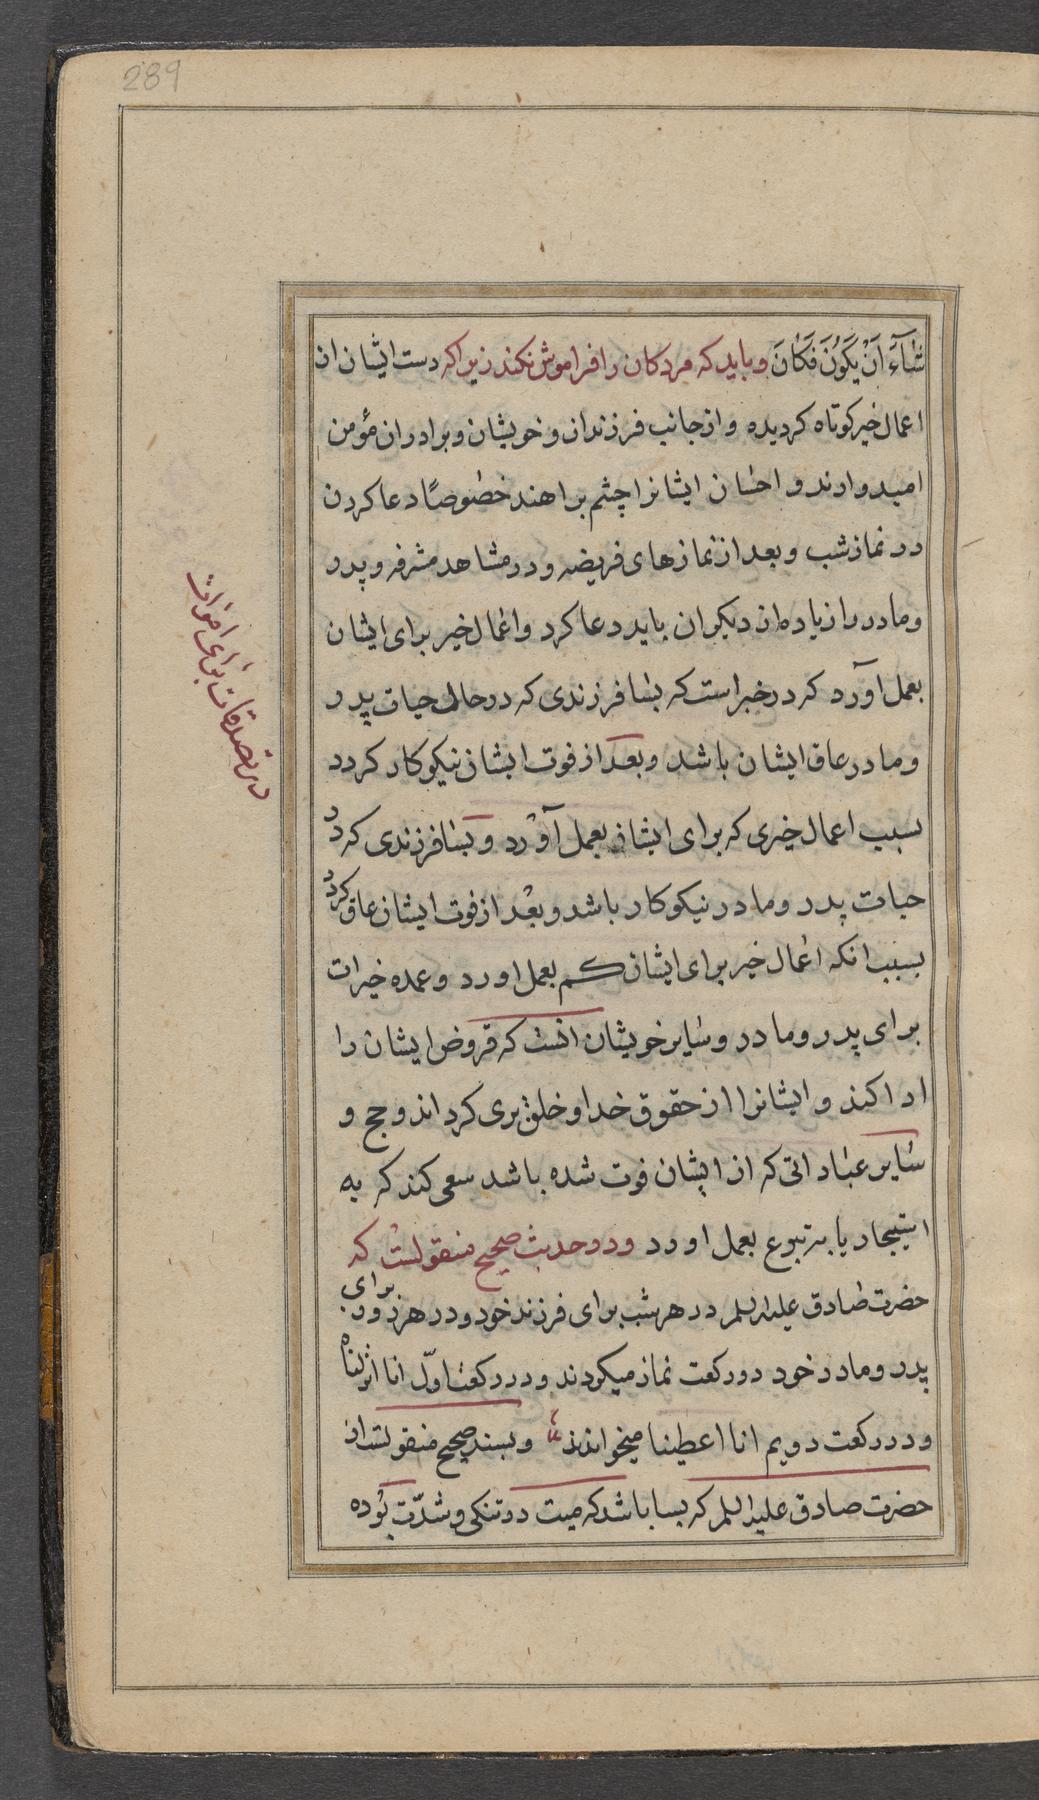 289
شٰآءَ اَنْ یَکُونَ فَکٰانَ و باید که مردکان را فراموش نکند زیرا که دست ایشان از
اعمال خیر کوتاه کردیده و از جانب فرزندان و خویشان و برادران مؤمن
امیدوارند و احسان ایشانرا چشم براهند خصوصًا دعا کردن
در نماز شب و بعد از نمازهای فریضه و در مشاهد مشرفه و پدر
و مادر را زیاده از دیکران باید دعا کرد و اعمال خیر برای ایشان
بعمل آورد که در خبر است که بسا فرزندی که در حال حیات پدر
و مادر عاق ایشان باشد و بعد از فوت ایشان نیکو کار کردد
بسبب اعمال خیری که برای ایشان بعمل آورد و بسا فرزندی که در
حیات پدر و مادر نیکو کار باشد و بعد از فوت ایشان عاق کردد
بسبب انکه اعمال خیر برای ایشان کم بعمل اورد و عمده خیرات
برای پدر و مادر و سایر خویشان انست که قروض ایشان را
ادا کند و ایشانرا از حقوق خدا و خلق بری کرداند و حج و
سایر عباداتی که از ایشان فوت شده باشد سعی کند که به
استیجار یا به تبرع بعمل اورد و در حدیث صحیح منقولست که
حضرت صادق علیه السلم در هر شب برای فرزند خود و در هر روز برای
پدر و مادر خود دو رکعت نماز میکردند و در رکعت اوّل انا انزلناه
و در رکعت دویم انا اعطینا میخواندند و بسند صحیح منقولست از
حضرت صادق علیه السلم که بسا باشد که میت در تنکی و شدّت بوده
در تصدقات برای اموات